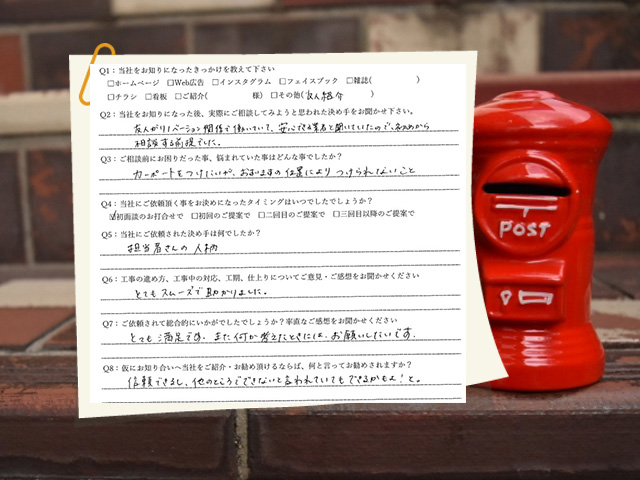 Q1：当社をお知りになったきっかけを教えて下さい
□ホームページ □Web広告 □インスタグラム □フェイスブック □雑誌( )
□チラシ □看板 □ご紹介( 様) □その他(友人紹介 )
Q2：当社をお知りになった後、実際にご相談してみようと思われた決め手をお聞かせ下さい。
友人がリノベーション関係で働いていて、安心できる業者と聞いていたので、初めから
相談する前提でした。
Q3：ご相談前にお困りだった事、悩まれていた事はどんな事でしたか？
カーポートをつけたいが、おすいますの位置によりつけられないこと
Q4：当社にご依頼頂く事をお決めになったタイミングはいつでしたでしょうか？
☑初面談のお打合せで □初回のご提案で □二回目のご提案で □三回目以降のご提案で
Q5：当社にご依頼された決め手は何でしたか？
担当者さんの人柄
Q6：工事の進め方、工事中の対応、工期、仕上りについてご意見・ご感想をお聞かせください
とてもスムーズで助かりました。
Q7：ご依頼されて総合的にいかがでしたでしょうか？率直なご感想をお聞かせください
とても満足です。また何か考えたときには、お願いしたいです。
Q8：仮にお知り合いへ当社をご紹介・お勧め頂けるならば、何と言ってお勧めされますか？
信頼できるし、他のところでできないと言われていてもできるかもよ！と。
POST